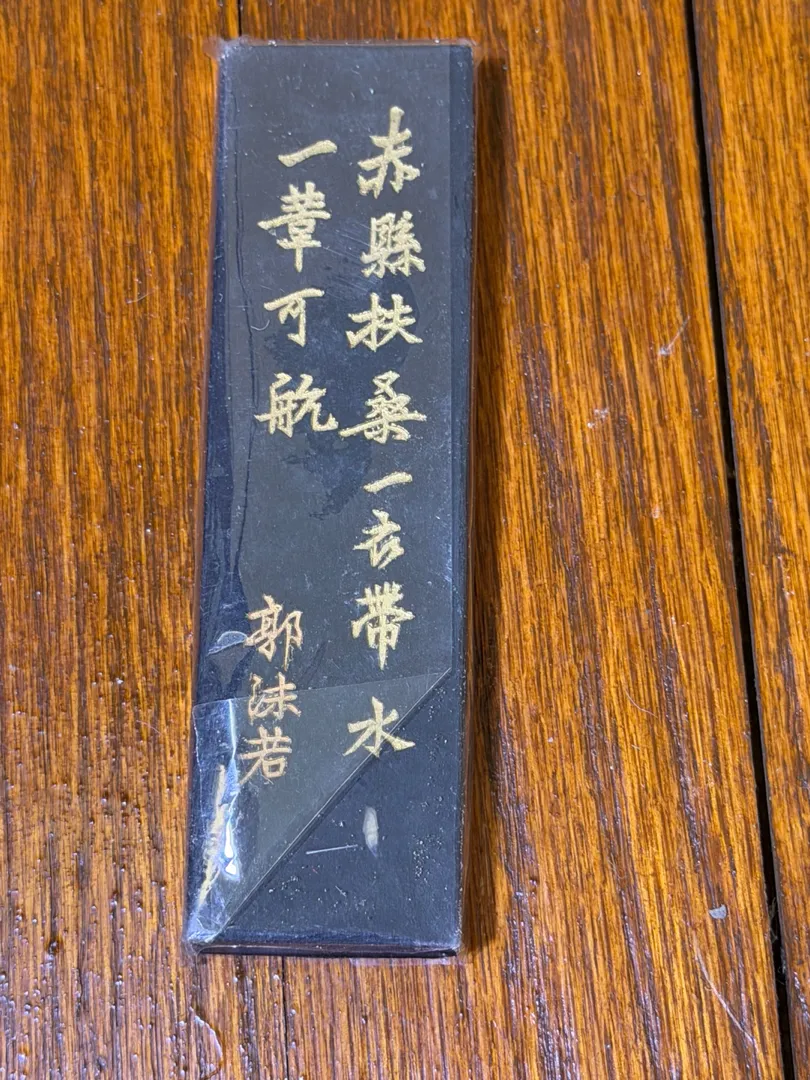 赤縣扶桑一衣帶水
一葦可航
郭沫若